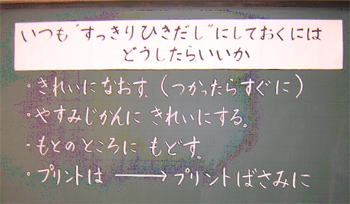 いつも"すっきりひきだし"にしておくには
どうしたらいいか
・きれいになおす。(つかったらすぐに)
・やすみじかんに きれいにする。
・もとのところに もどす。
・プリントは ⟶ プリントばさみに